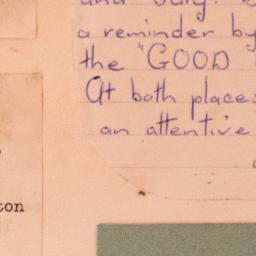 and July.
a reminder by
the "GOOD
At both places
an attentive
ton